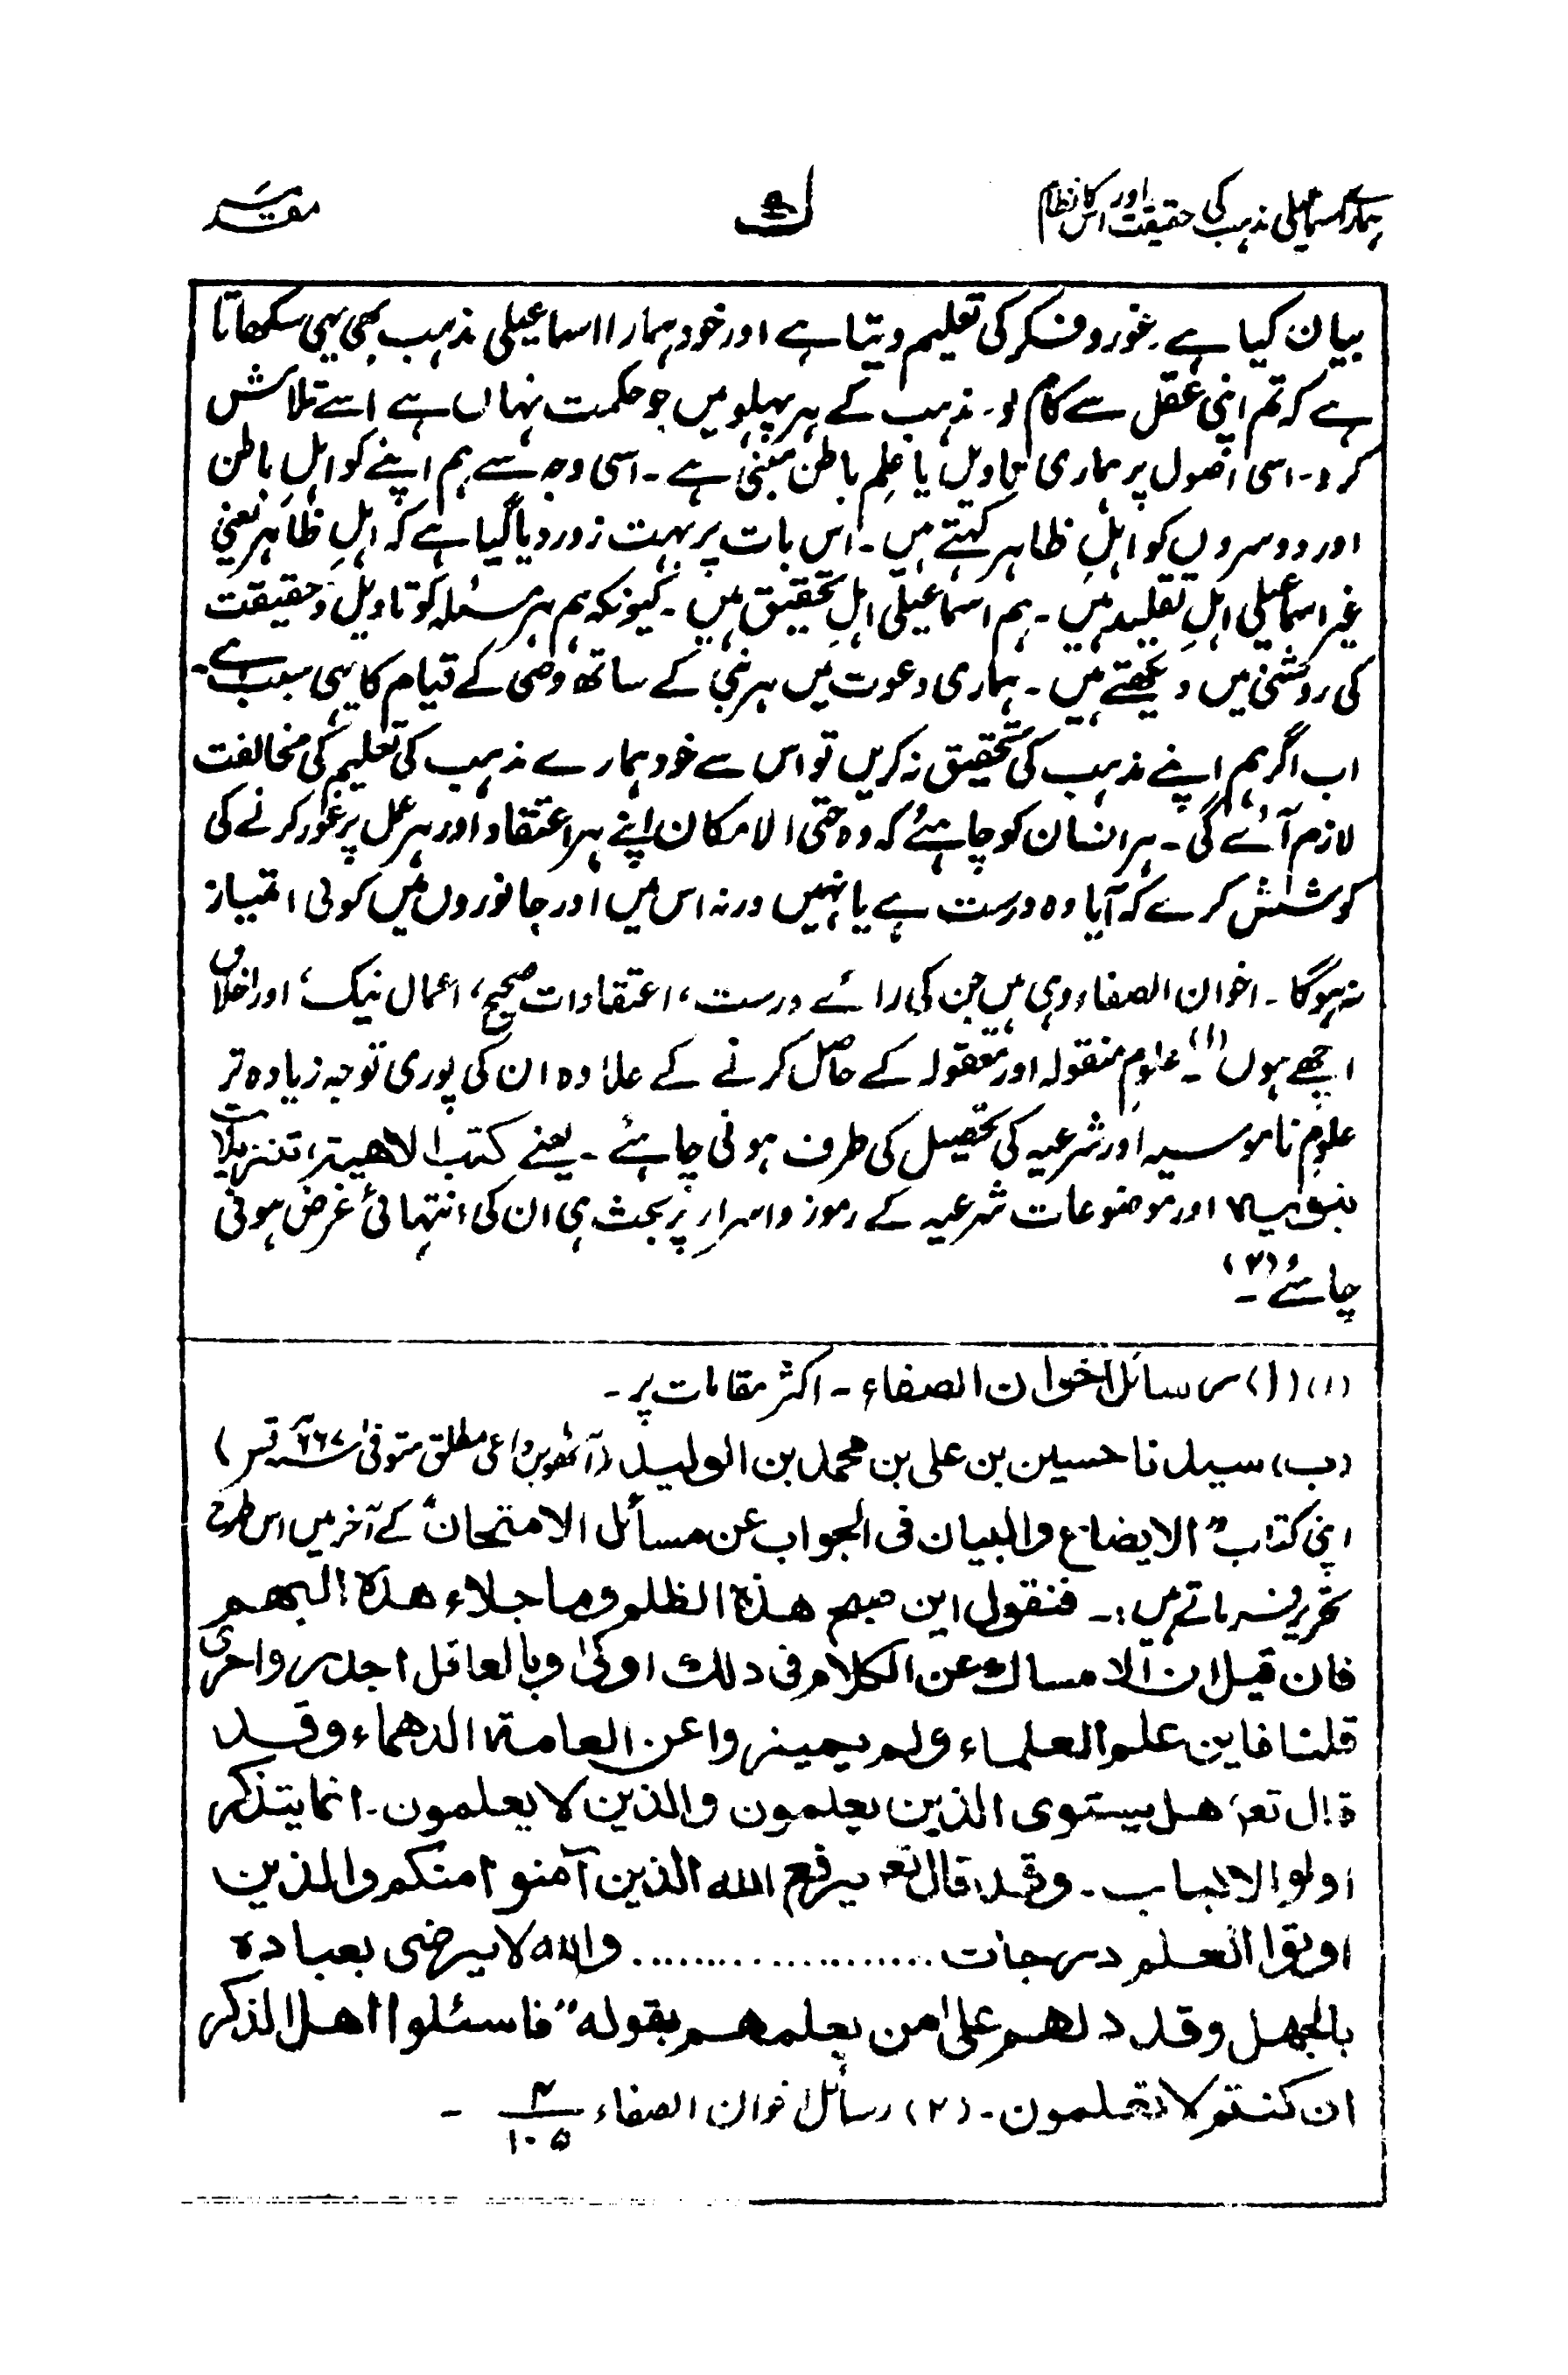 ہمارے اسماعیلی مذہب کی حقیقت اور اس کا نظام
مقدمہ
بیان کیا ہے۔ غور و فکر کی تعلیم دیتا ہے اور خود ہمارا اسماعیلی مذہب بھی یہی سکھاتا
ہے کہ تم اپنی عقل سے کام لو۔ مذہب کے ہر پہلو میں جو حکمت نہاں ہے اسے تلاش
کرو۔ اسی اصول پر ہماری تاویل یا علمِ باطن مبنیٰ ہے۔ اسی وجہ سے ہم اپنے کو اہلِ باطن
اور دوسروں کو اہلِ ظاہر کہتے ہیں۔ اس بات پر بہت زور دیا گیا ہے کہ اہلِ ظاہر یعنی
غیر اسماعیلی اہلِ تقلید ہیں۔ ہم اسماعیلی اہلِ تحقیق ہیں۔ کیونکہ ہم ہر مسئلہ کو تاویل و حقیقت
کی روشنی میں دیکھتے ہیں۔ ہماری دعوت میں ہر نبی کے ساتھ وصی کے قیام کا یہی سبب ہے۔
اب اگر ہم اپنے مذہب کی تحقیق نہ کریں تو اس سے خود ہمارے مذہب کی تعلیم کی مخالفت
لازم آئے گی۔ ہر انسان کو چاہئے کہ وہ حتی الامکان اپنے ہر اعتقاد اور ہر عمل پر غور کرنے کی
کوشش کرے کہ آیا وہ درست ہے یا نہیں ورنہ اس میں اور جانوروں میں کوئی امتیاز
نہ ہوگا۔ اخوان الصفاء وہی ہیں جن کی رائے درست، اعتقادات صحیح، اعمال نیک، اور اخلاق
اچھے ہوں (۱)۔ علومِ منقولہ اور معقولہ کے حاصل کرنے کے علاوہ ان کی پوری توجہ زیادہ تر
علومِ ناموسیہ اور شرعیہ کی تحصیل کی طرف ہونی چاہئے۔ یعنے کتب الاهیة، تنزیلات
نبویة اور موضوعات شرعیہ کے رموز و اسرار پر بحث ہی ان کی انتہائی غرض ہونی
چاہئے (۲)۔
(۱) (ا) رسائل اخوان الصفاء۔ اکثر مقامات پر۔
(ب) سیدنا حسین بن علی بن محمد بن الولید (آٹھویں داعی مطلق متوفیٰ ۶۶۷ھ)
اپنی کتاب "الایضاح والبیان فی الجواب عن مسائل الامتحان" کے آخر میں اس طرح
تحریر فرماتے ہیں:۔ فنقول این صبح هذہ الظلم وما جلاء هذہ البهم
فان قیل ان الامساك عن الکلام فی ذلك اولیٰ وبالعاقل اجدر واحریٰ
قلنا فاین علم العلماء ولم یمیزوا عن العامة الدهماء وقد
قال تعـ هل یستوی الذین یعلمون والذین لا یعلمون۔ انما یتذکر
اولوا الالباب۔ وقد قال تعـ یرفع الله الذین آمنوا منکم والذین
اوتوا العلم درجات .................... والله لا یرضی بعبادہ
بالجهل وقد دلهم علیٰ من یعلمهم بقوله "فاسئلوا اهل الذکر
ان کنتم لا تعلمون۔ (۲) رسائل اخوان الصفاء ۴/۱۰۵ ۔